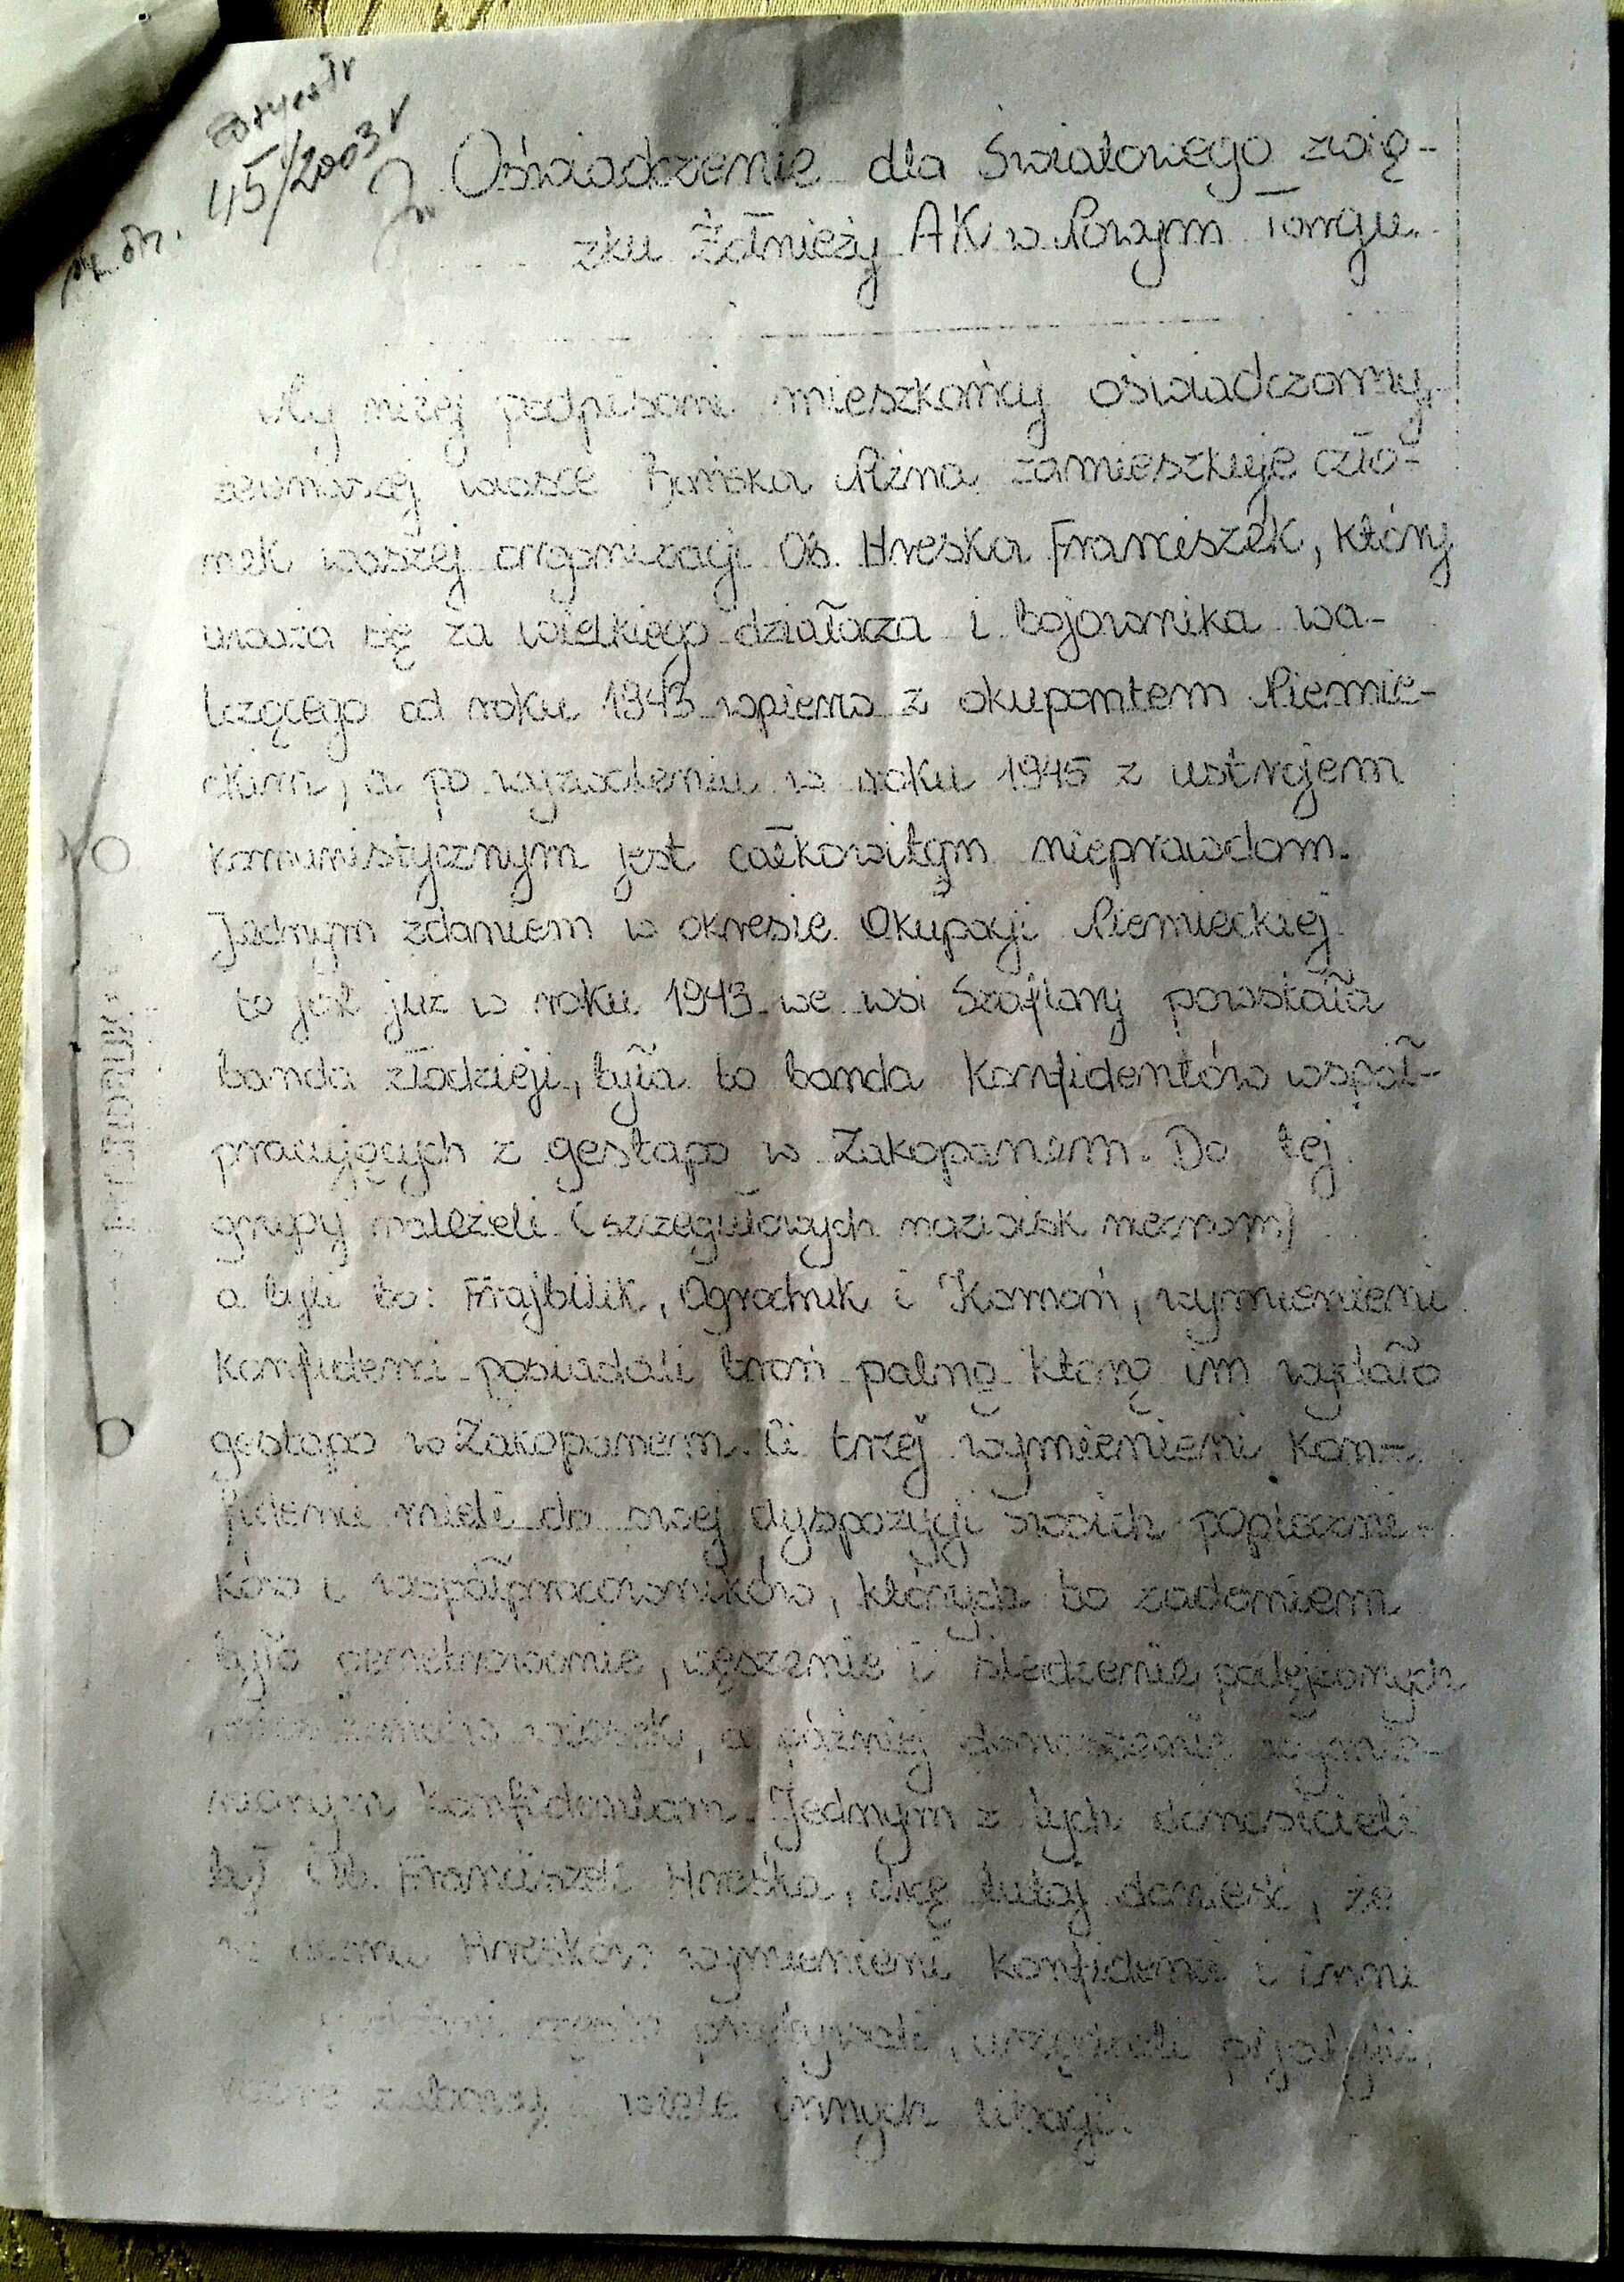 45/2003 r
Oświadczenie dla Światowego zwią-
zku Żołnieży AK w Nowym Targu.
My niżej podpisani mieszkańcy oświadczamy,
wiosce Bańska Niżna zamieszkuje czło-
nek waszej organizacji Ob. Hreśka Franciszek, który
uważa się za wielkiego działacza i bojownika wa-
lczącego od roku 1943 wpierw z okupantem Niemie-
ckim, a po wyzwoleniu w roku 1945 z ustrojem
komunistycznym jest całkowitym nieprawdom.
Jednym zdaniem w okresie Okupacji Niemieckiej
to jest już w roku 1943 we wsi Szaflary powstała
banda złodzieji, była to banda Konfidentów współ-
pracujących z gestapo w Zakopanem. Do tej
grupy należeli (szczegułowych nazwisk nieznam)
a byli to: Frajbilik, Ogrodnik i Kamoń, wymienieni
Konfidenci posiadali broń palną którą im wydało
gestapo w Zakopanem. Ci trzej wymienieni Kon-
fidenci mieli do swej dyspozycji swoich popleczni-
ków i współpracowników, których to zadaniem
było penetrowanie, węszenie i śledzenie podejżanych
wiosek, a później donoszenie wymie-
nionym konfidentom. Jednym z tych donosicieli
był Ob. Franciszek Hreśka, chcę tutaj donieść, że
w domu Hreśków wymienieni Konfidenci i inni
często przebywali, urządzali pijatyki,
zabawy i wiele innych libacji.